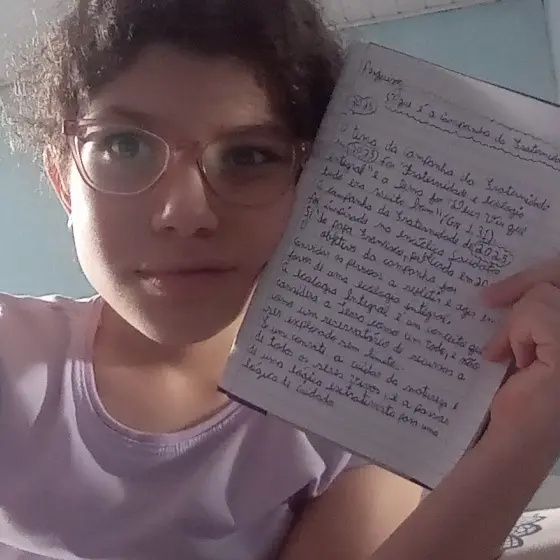 Pesquisa
2025 O que é a Campanha da Fraternidade
O tema da campanha da Fraternidade
em 2025 foi "Fraternidade e Ecologia
Integral" e o lema foi "Deus viu que
tudo era muito bom" (Gn 1,31)
A campanha da Fraternidade de 2025
foi inspirada na encíclica Laudato
Si, do papa Francisco, publicada em 20
O objetivo da campanha foi
convidar as pessoas a refletir e agir em
favor de uma ecologia integral.
A ecologia Integral é um conceito que
considera a Terra como um todo, e não
como um reservatório de recursos a
ser explorado sem limite.
É um convite a cuidar da natureza e
de todos os seres vivos, e a passar
de uma lógica extrativista para uma
lógica de cuidado